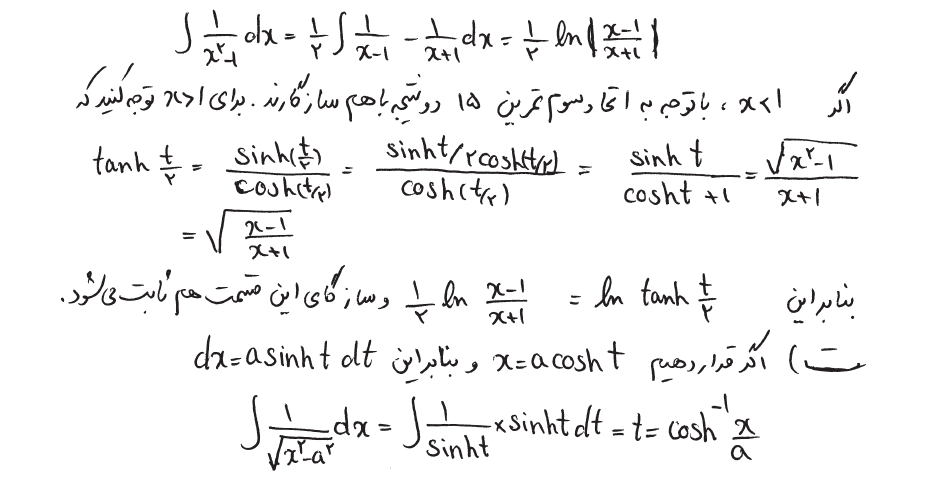 ∫ 1/(x^۲-1) dx = 1/۲ ∫ 1/(x-1) - 1/(x+1) dx = 1/۲ ln|(x-1)/(x+1)|
اگر x<1 ، با توجه به اتحاد سوم تمرین ۱۵ دو نتیجه با هم سازگارند. برای x>1 توجه کنید که
tanh t/۲ = sinh(t/۲)/cosh(t/۲) = (sinht/۲cosh(t/۲))/cosh(t/۲) = sinh t/(cosht +1) = √(x^۲-1)/(x+1)
= √((x-1)/(x+1))
بنابراین 1/۲ ln (x-1)/(x+1) = ln tanh t/۲ و سازگای این قسمت هم ثابت می‌شود.
ت) اگر قرار دهیم x=a cosh t و بنابراین dx=a sinh t dt
∫ 1/√(x^۲-a^۲) dx = ∫ 1/sinht × sinht dt = t = cosh^-1 x/a